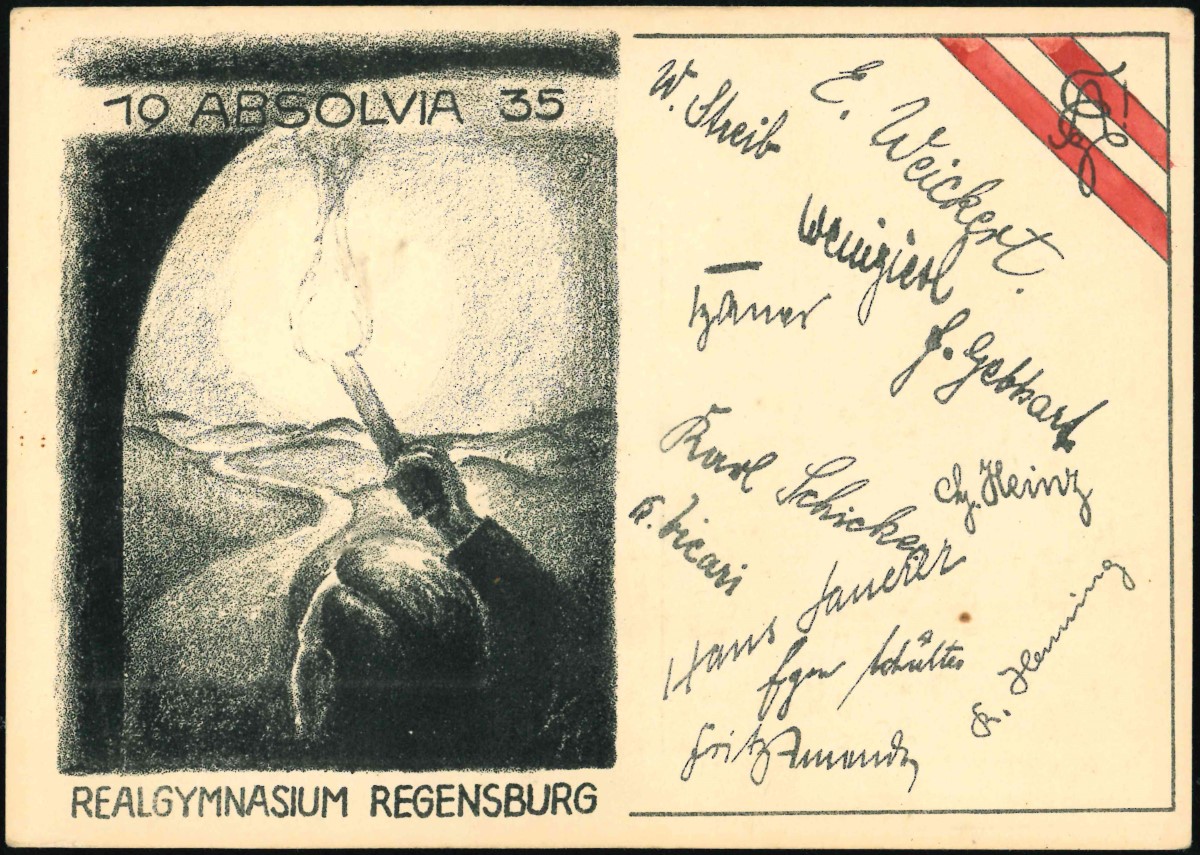 19 ABSOLVIA 35
REALGYMNASIUM REGENSBURG
W. Streib
E. Weickert.
Weinzierl
F. Gebhardt
Karl Schicker
Chr. Heinz
a. Vicari
Hans Sauerer
Egon Schültes
Fr. Henning
Fritz Amende